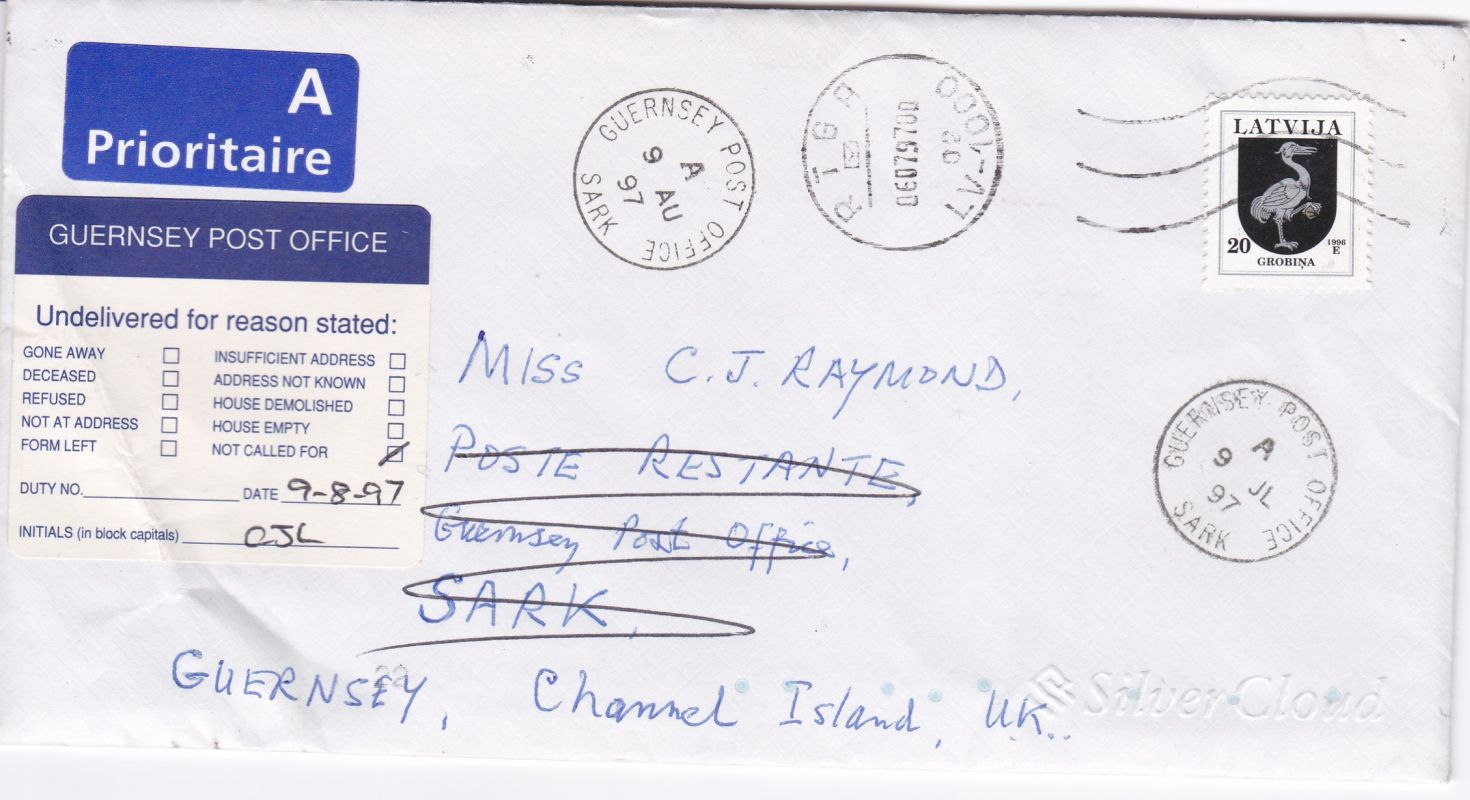 A
Prioritaire
GUERNSEY POST OFFICE
Undelivered for reason stated:
GONE AWAY
DECEASED
REFUSED
NOT AT ADDRESS
FORM LEFT
INSUFFICIENT ADDRESS
ADDRESS NOT KNOWN
HOUSE DEMOLISHED
HOUSE EMPTY
NOT CALLED FOR
DUTY NO.
DATE 9-8-97
INITIALS (in block capitals) CJL
GUERNSEY POST OFFICE
A
9 AU
97
SARK
RIGA
06079700
20
LV-1000
LATVIJA
20
1996
E
GROBIŅA
MISS C.J. RAYMOND,
POSTE RESTANTE,
Guernsey Post Office,
SARK,
GUERNSEY, Channel Island, U.K..
GUERNSEY POST OFFICE
A
9 JL
97
SARK
22
Silver Cloud